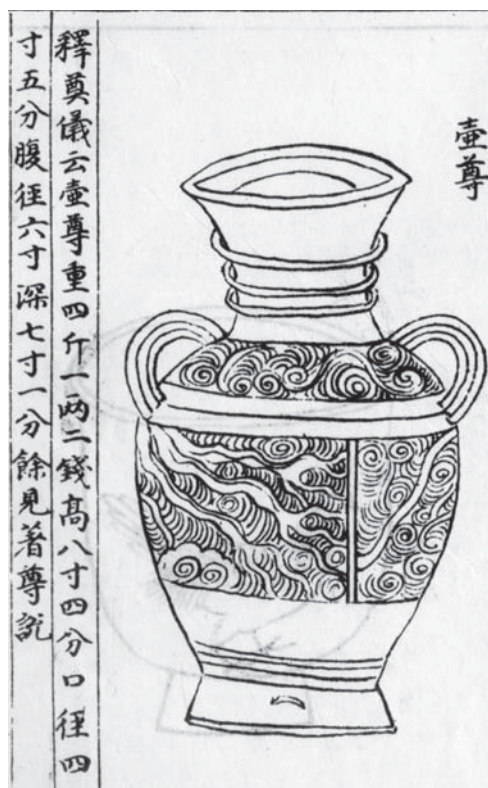 壺尊
釋奠儀云壺尊重四斤一兩二錢高八寸四分口徑四
寸五分腹徑六寸深七寸一分餘見著尊說